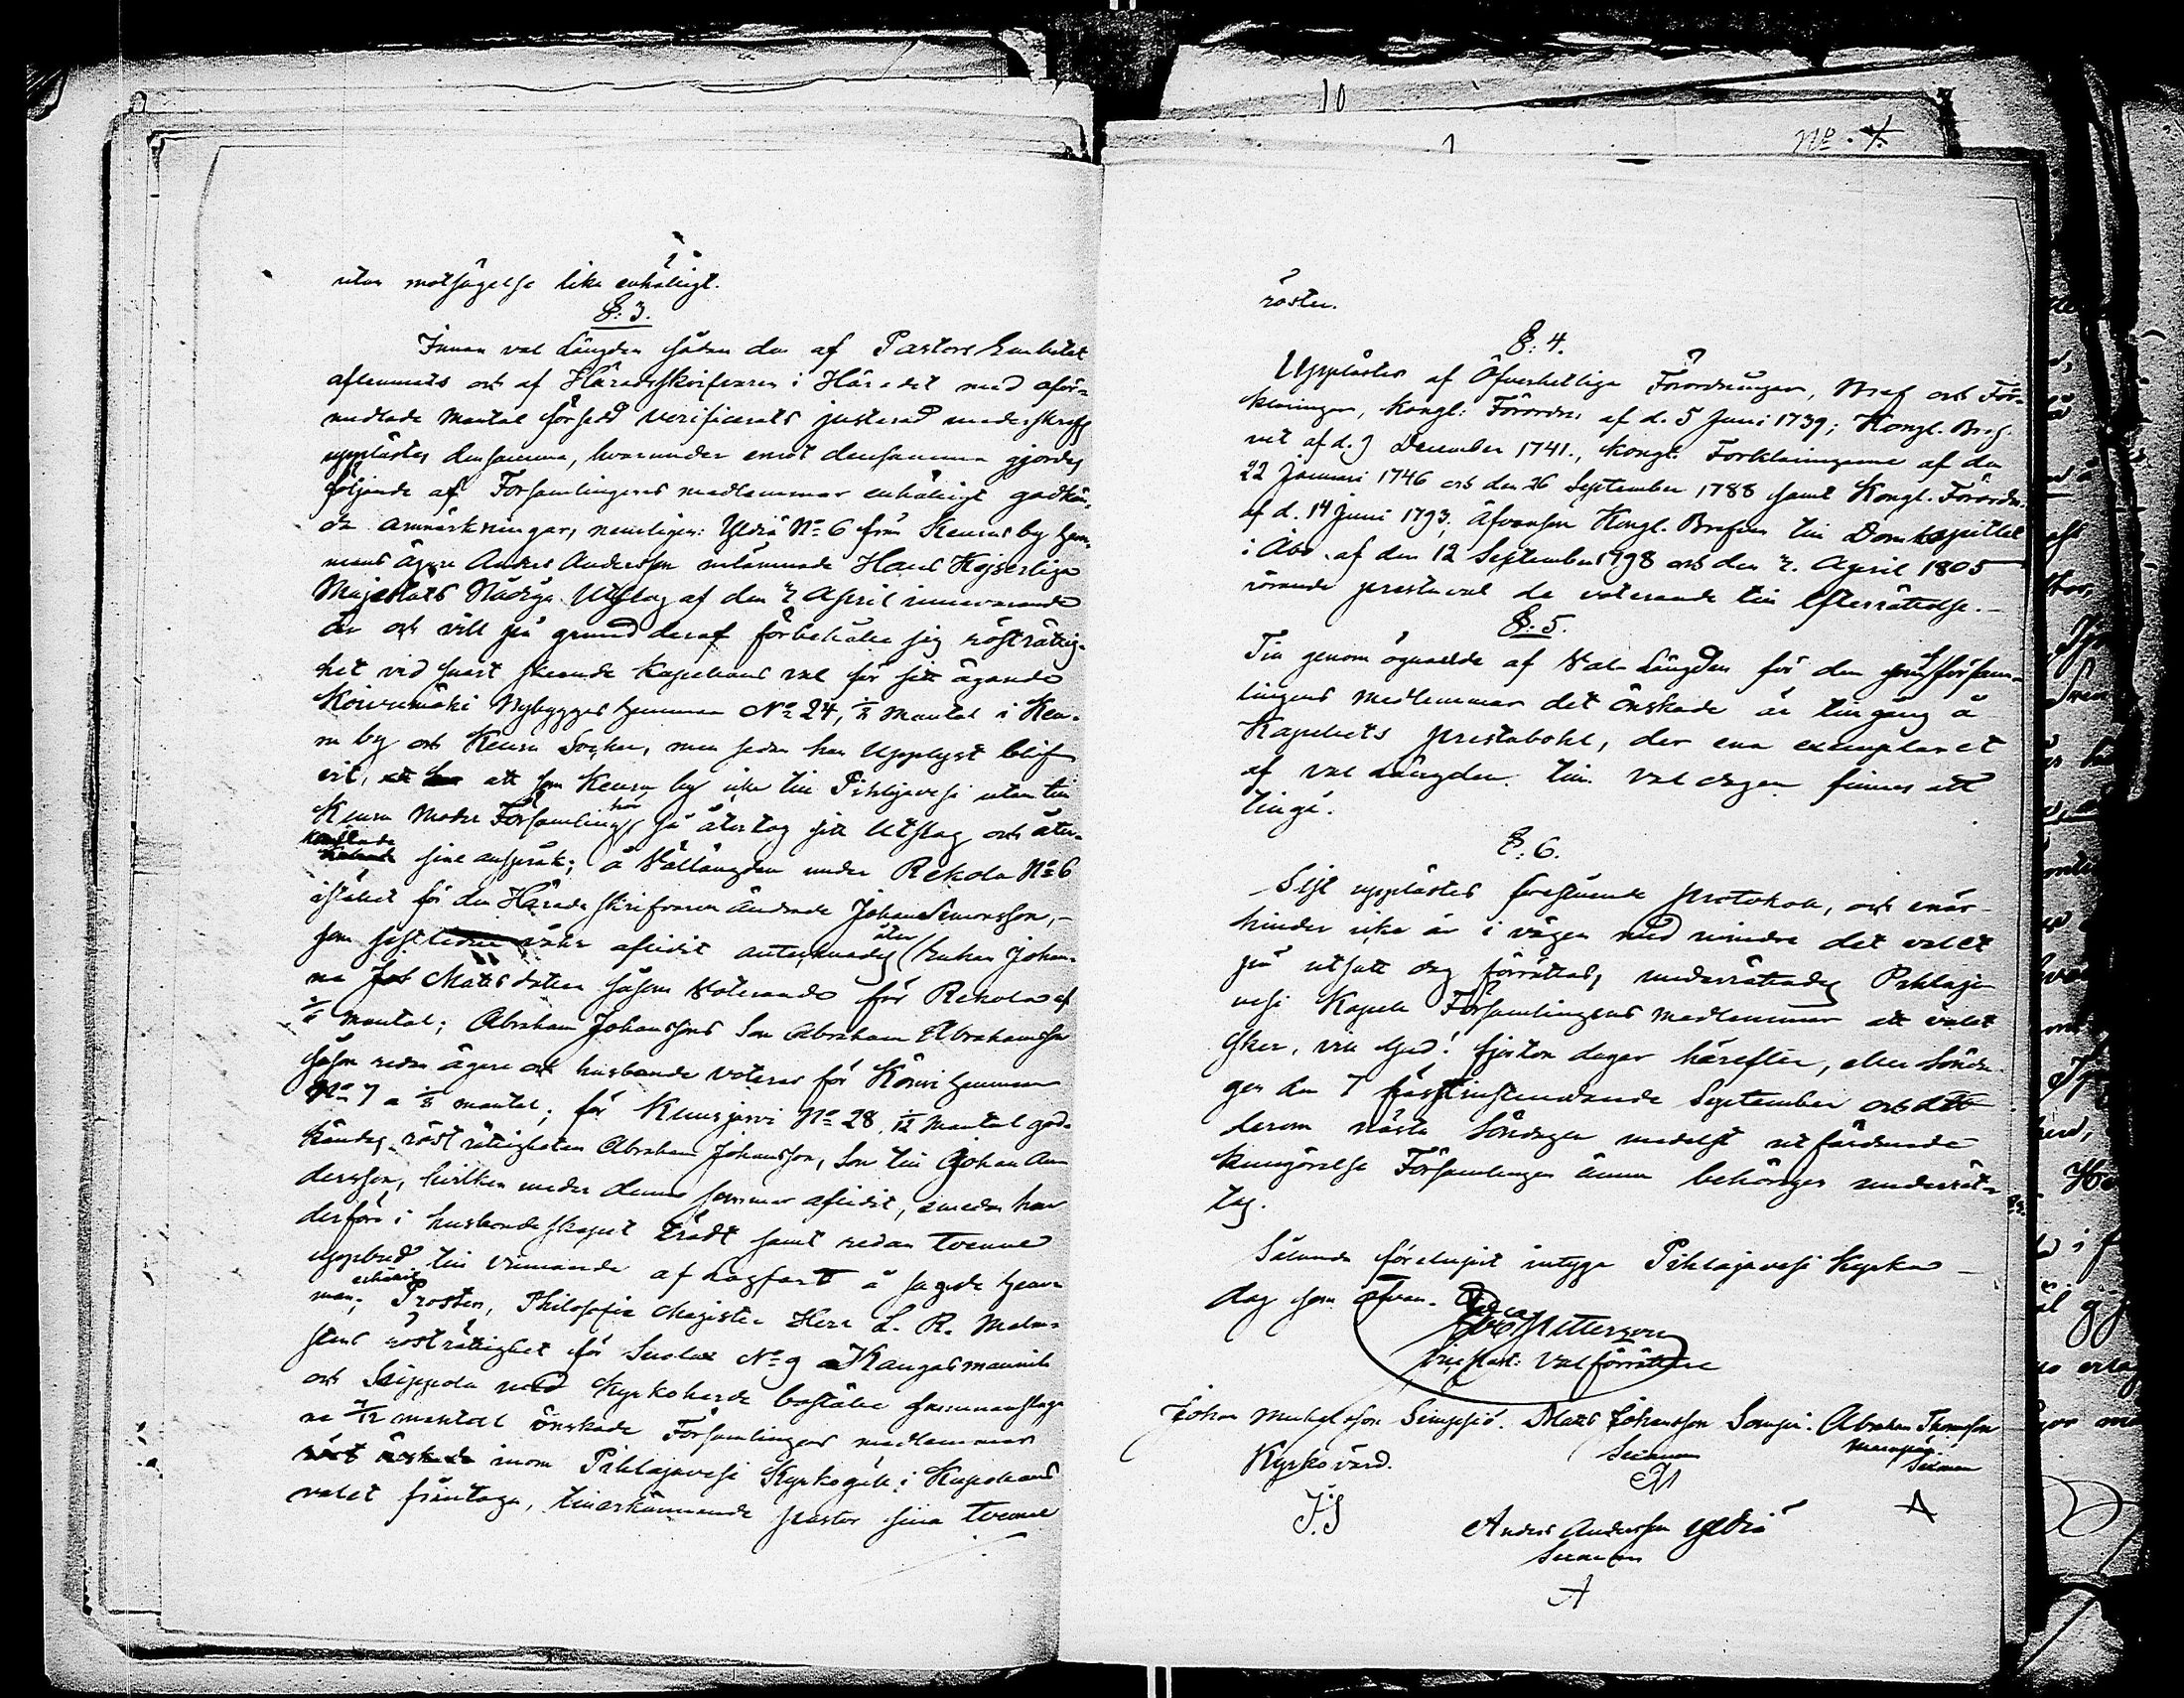 utan motsägelse lika enhäligt.
§: 3.
Innan val Längden sådan den af Pastors Embetet
aflemnats och af Häradsskrifvaren i Häradet med oför-
medlade Mantal försedd verificerats justerad underskrefs
upplästes densamma, hvarunder emot densamma gjordes
följande af Församlingens medlemmar enhäligt godkän-
da anmärkningar, nemligen: Yldiä No 6 från Keuru by hem-
mans ägare Anders Andersson inlämnade Hans Kejserliga
Majestäts Nådiga Utslag af den 2 April innevarande
år och vill på grund deraf förbehålla sig rösträttig-
het vid snart skeende Kapellans val för sitt ägande
Koivumäki Nybygges hemman No 24, 1/8 Mantal i Keu-
ru by och Keuru Socken, men sedan han Upplyst blif-
vit, att som Keuru by icke till Pihlajavesi utan till
Keuru Moder Församling hör så återtog sitt Utslag och åter-
kallade sine anspråk; å Vallängden under Rekola No 6
istället för den Häradsskrifvaren ändrade Johan Simonsson,-
som sistledne afledit antecknades åter Enkan Johan-
na Matts dotter såsom Voterande för Rekola af
mantal; Abraham Johanssons Son Abraham Abrahamsson
såsom redan ägare och husbonde voterar för Koivi hemman
No 7 a 1/8 mantal; för Keurujärvi No 28, 1/12 Mantal god-
kändes rösträttigheten Abraham Johansson, Son till Johan An-
dersson, hvilken under denne sommar afledit, emedan han
derföre i husbondeskapet trädt samt redan tvenne
uppbud till vinnande af lagfart å sagde hem-
man; enhäligt Prosten, Philosofie Magister Herr L. R. Malm-
stens rösträttighet för Suolax No 9 a Kangasmannila
och Seippola med Kyrkoherde boställe sammanslag-
na 7/12 mantal önskade Församlingens medlemmar
inom Pihlajavesi Kyrkogäll i Kapellans
valet fråntaga, tillerkännande Pastor sina tvenne
10
1
No. 7.
röster.
§: 4.
Upplästes af Öfverhetliga Förordningar, Bref och För-
klaringar, Kongl: Förordn: af d. 5 Juni 1739; Kongl. Bref-
vet af d. 9 December 1741., Kongl. Förklaringarne af den
22 Januari 1746 och den 26 September 1788 samt Kongl. Förordn:
af d. 14 Juni 1793, äfvensom Kongl. Brefven till Domkapitlet
i Åbo af den 12 September 1798 och den 2. April 1805
rörande prestaval de voterande till Efterrättelse.-
§: 5.
Till genom ögnande af Val-Längden för den som församl-
lingens medlemmar det önskade är tillgång å
Kapellets prestabohl, der ena exemplaret
af val Längden till Val dagen finnes att
tillgå.
§: 6.
Sist upplästes förestående protokoll, och enär
hinder icke är i vägen med mindre det valet
på utsatt dag förrättas, underrättades Pihlaja-
vesi Kapell Församlings medlemmar att valet
sker, vill Gud! fjorton dagar härefter, eller Sönda-
gen den 7 förstinstundande September och att
derom nästa Söndagen medelst utfärdande
kungörelse Församlingen ännu behörigen underrät-
tas.
Sålunda förelupit intyga Pihlajavesi Kyrka
dag som ofvan.
Pettersson
Vice Past: Valförrättare
Johan Mickelsson Simpsiö. Matts Johansson Sompi. Abraham Thomasson
Kyrkovärd. Sexman Sexman
J.S M A
Anders Andersson Yldiä
Sexman
A